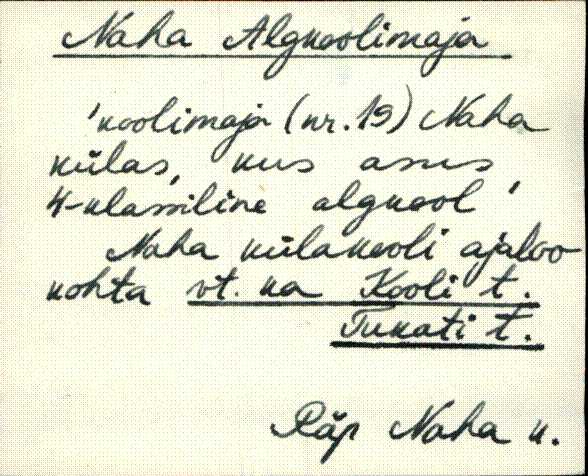 Naha Algkoolimaja
'koolimaja (nr. 19) Naha
külas, kus asus
4-klassiline algkool'
Naha külakooli ajaloo
kohta vt. ka Kooli t.
Tukati t.
Räp Naha k.